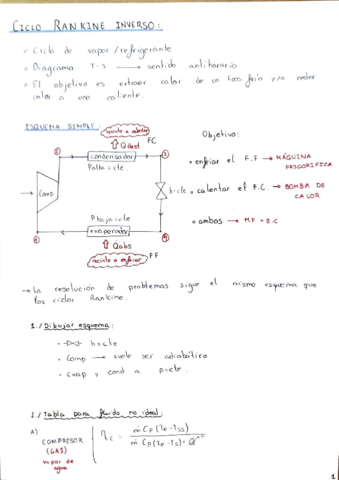 CICLO RANKINE INVERSO:
• Ciclo de vapor/refrigerante
• Diagrama T-S → sentido antihorario
• El objetivo es extraer calor de un foco frío y/o ceder
calor a uno caliente.
ESQUEMA SIMPLE:
recinto a calentar
Qdest
FC
condensador
Palta = cte
②
③
Comp
h=cte
Pbaja=cte
evaporador
①
④
Qabs
recinto a enfriar
FF
Objetivo:
• enfriar el F.F → MÁQUINA
FRIGORÍFICA
• calentar el F.C. → BOMBA DE
CALOR
• ambos → M.F + B.C
→ La resolución de problemas sigue el mismo esquema que
los ciclos Rankine.
1./ Dibujar esquema:
h=cte
• Comp → suele ser adiabático
• Evap y cond a p=cte.
2./ Tabla para fluido no ideal:
A)
COMPRESOR
(GAS)
vapor de
agua
1